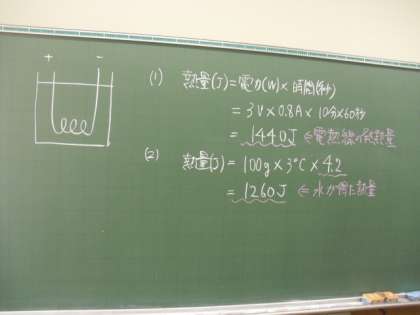 + -
(1) 熱量(J)=電力(W)×時間(秒)
= 3V×0.8A×10分×60秒
= 1440J ⇐電熱線の発熱量
(2) 熱量(J)= 100g×3℃×4.2
= 1260J ⇐水が得た熱量